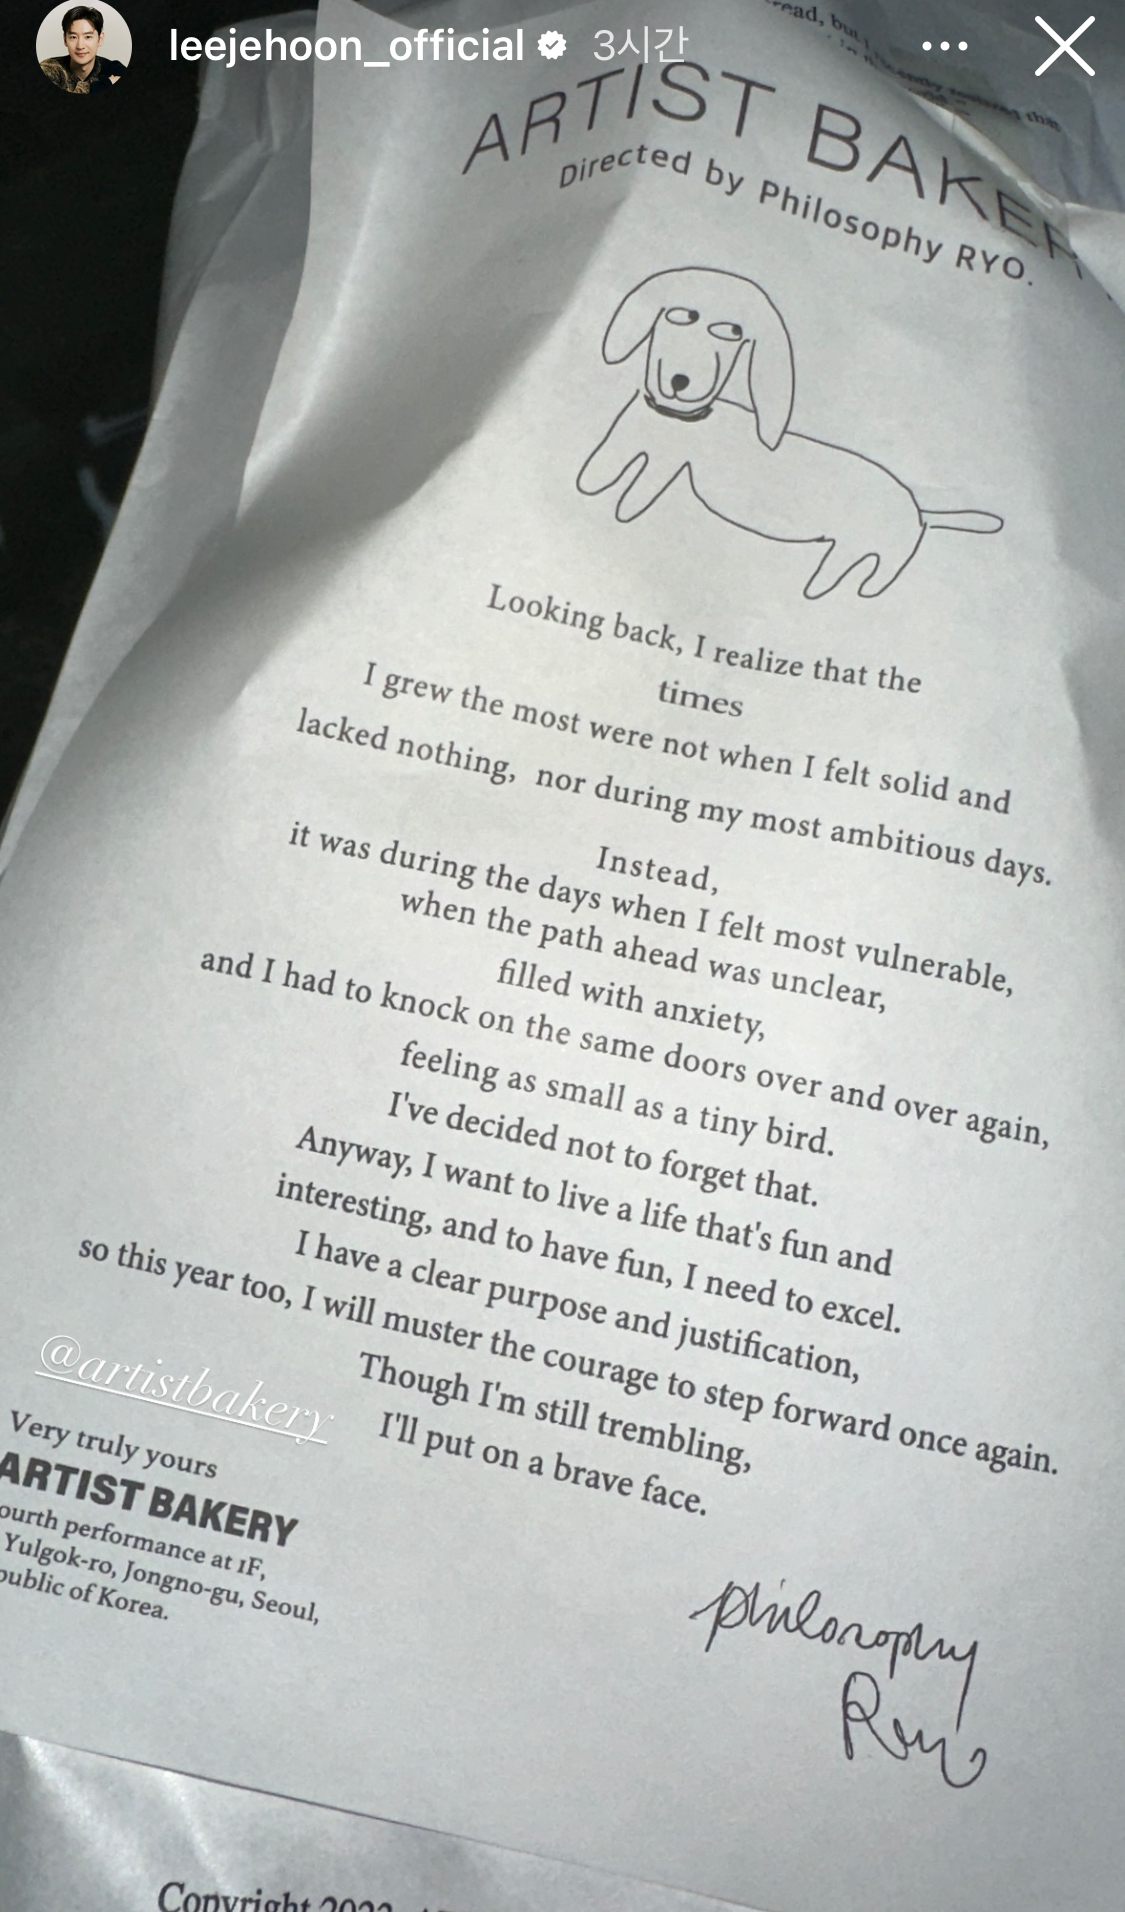 leejehoon_official 3시간
read, but I
ARTIST BAKER
Directed by Philosophy RYO.
Looking back, I realize that the
times
I grew the most were not when I felt solid and
lacked nothing, nor during my most ambitious days.
Instead,
it was during the days when I felt most vulnerable,
when the path ahead was unclear,
filled with anxiety,
and I had to knock on the same doors over and over again,
feeling as small as a tiny bird.
I've decided not to forget that.
Anyway, I want to live a life that's fun and
interesting, and to have fun, I need to excel.
I have a clear purpose and justification,
so this year too, I will muster the courage to step forward once again.
Though I'm still trembling,
I'll put on a brave face.
@artistbakery
Very truly yours
ARTIST BAKERY
ourth performance at 1F,
Yulgok-ro, Jongno-gu, Seoul,
public of Korea.
philosophy
Ryo
Copyright